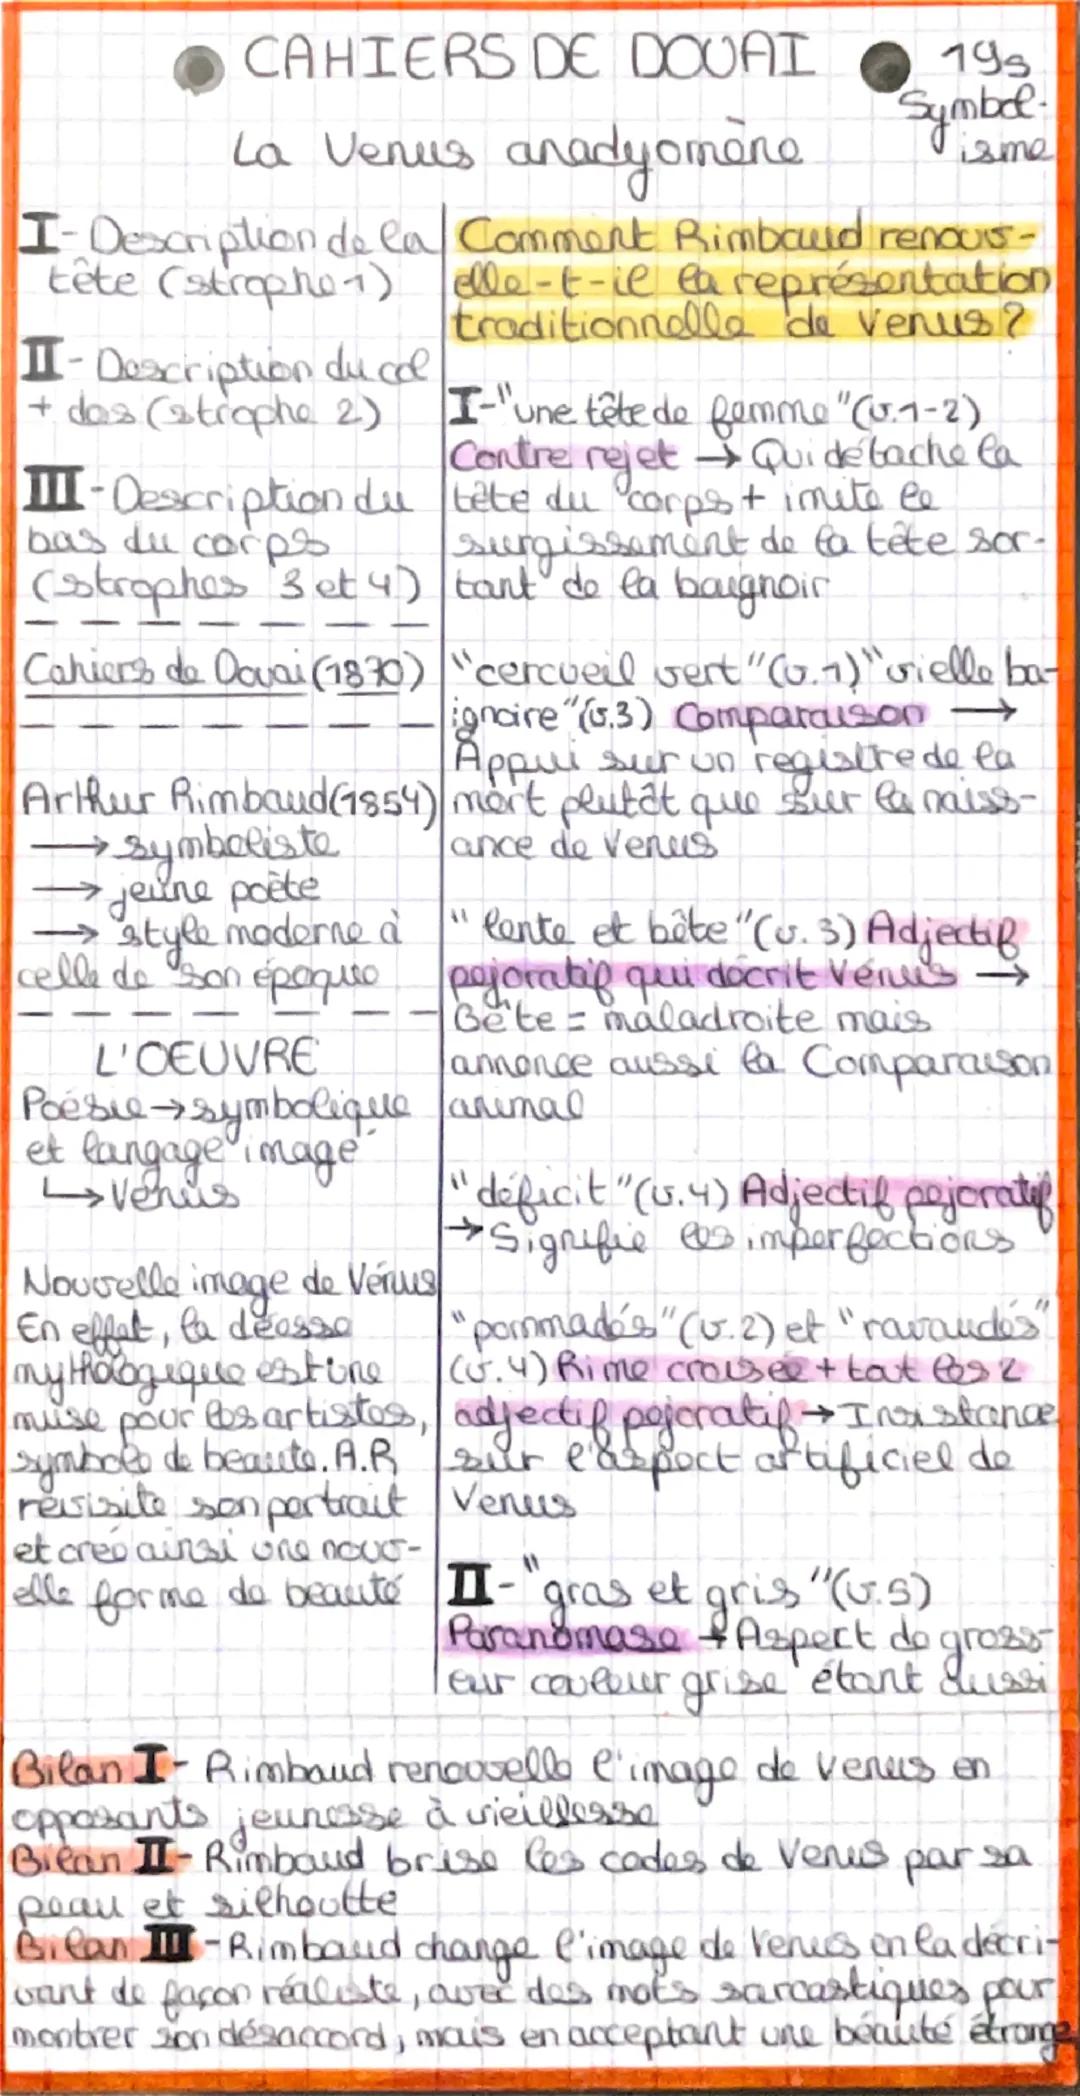 CAHIERS DE DOUAI
19s
Symbol-
isme
La Venus anadyomène
I- Description de la
tête (strophe 1)
II- Description du col
+ dos (strophe 2)
III- Description du
bas du corps
(strophes 3 et 4)
Cahiers de Douai (1870)
Arthur Rimbaud (1854)
→ symboliste
→ jeune poète
→ style moderne à
celle de son époque
L'OEUVRE
Poésie → symbolique
et langage imagé
↳ Vénus
Nouvelle image de Vénus
En effet, la déesse
mythologique est une
muse pour les artistes,
symbole de beauté. A.R
revisite son portrait
et creé ainsi une nouv-
elle forme de beauté
Comment Rimbaud renouv-
elle-t-il la représentation
traditionnelle de Venus?
I- "une tête de femme" (v.1-2)
Contre rejet → Qui détache la
tête du corps + imite le
surgissement de la tête sor-
tant de la baignoir
"cercueil vert" (v.1) "vielle ba-
ignoire" (v.3) Comparaison →
Appui sur un registre de la
mort plutôt que sur la naiss-
ance de Venus
"lente et bête" (v.3) Adjectif
pejoratif qui décrit Vénus →
Bête = maladroite mais
annonce aussi la Comparaison
animal
"déficit" (v.4) Adjectif pejoratif
→ Signifie les imperfections
"pommadés" (v.2) et "ravaudés"
(v.4) Rime croisée + tout les 2
adjectif pejoratif → Insistance
sur l'aspect artificiel de
Venus
II- "gras et gris" (v.5)
Paranomase → Aspect de gross-
eur couleur grise étant aussi
Bilan I- Rimbaud renouvelle l'image de Venus en
opposants jeunesse à vieillesse
Bilan II- Rimbaud brise les codes de Venus par sa
peau et silhoutte
Bilan III- Rimbaud change l'image de Venus en la décri-
vant de façon réaliste, avec des mots sarcastiques pour
montrer son désaccord, mais en acceptant une beauté étrange